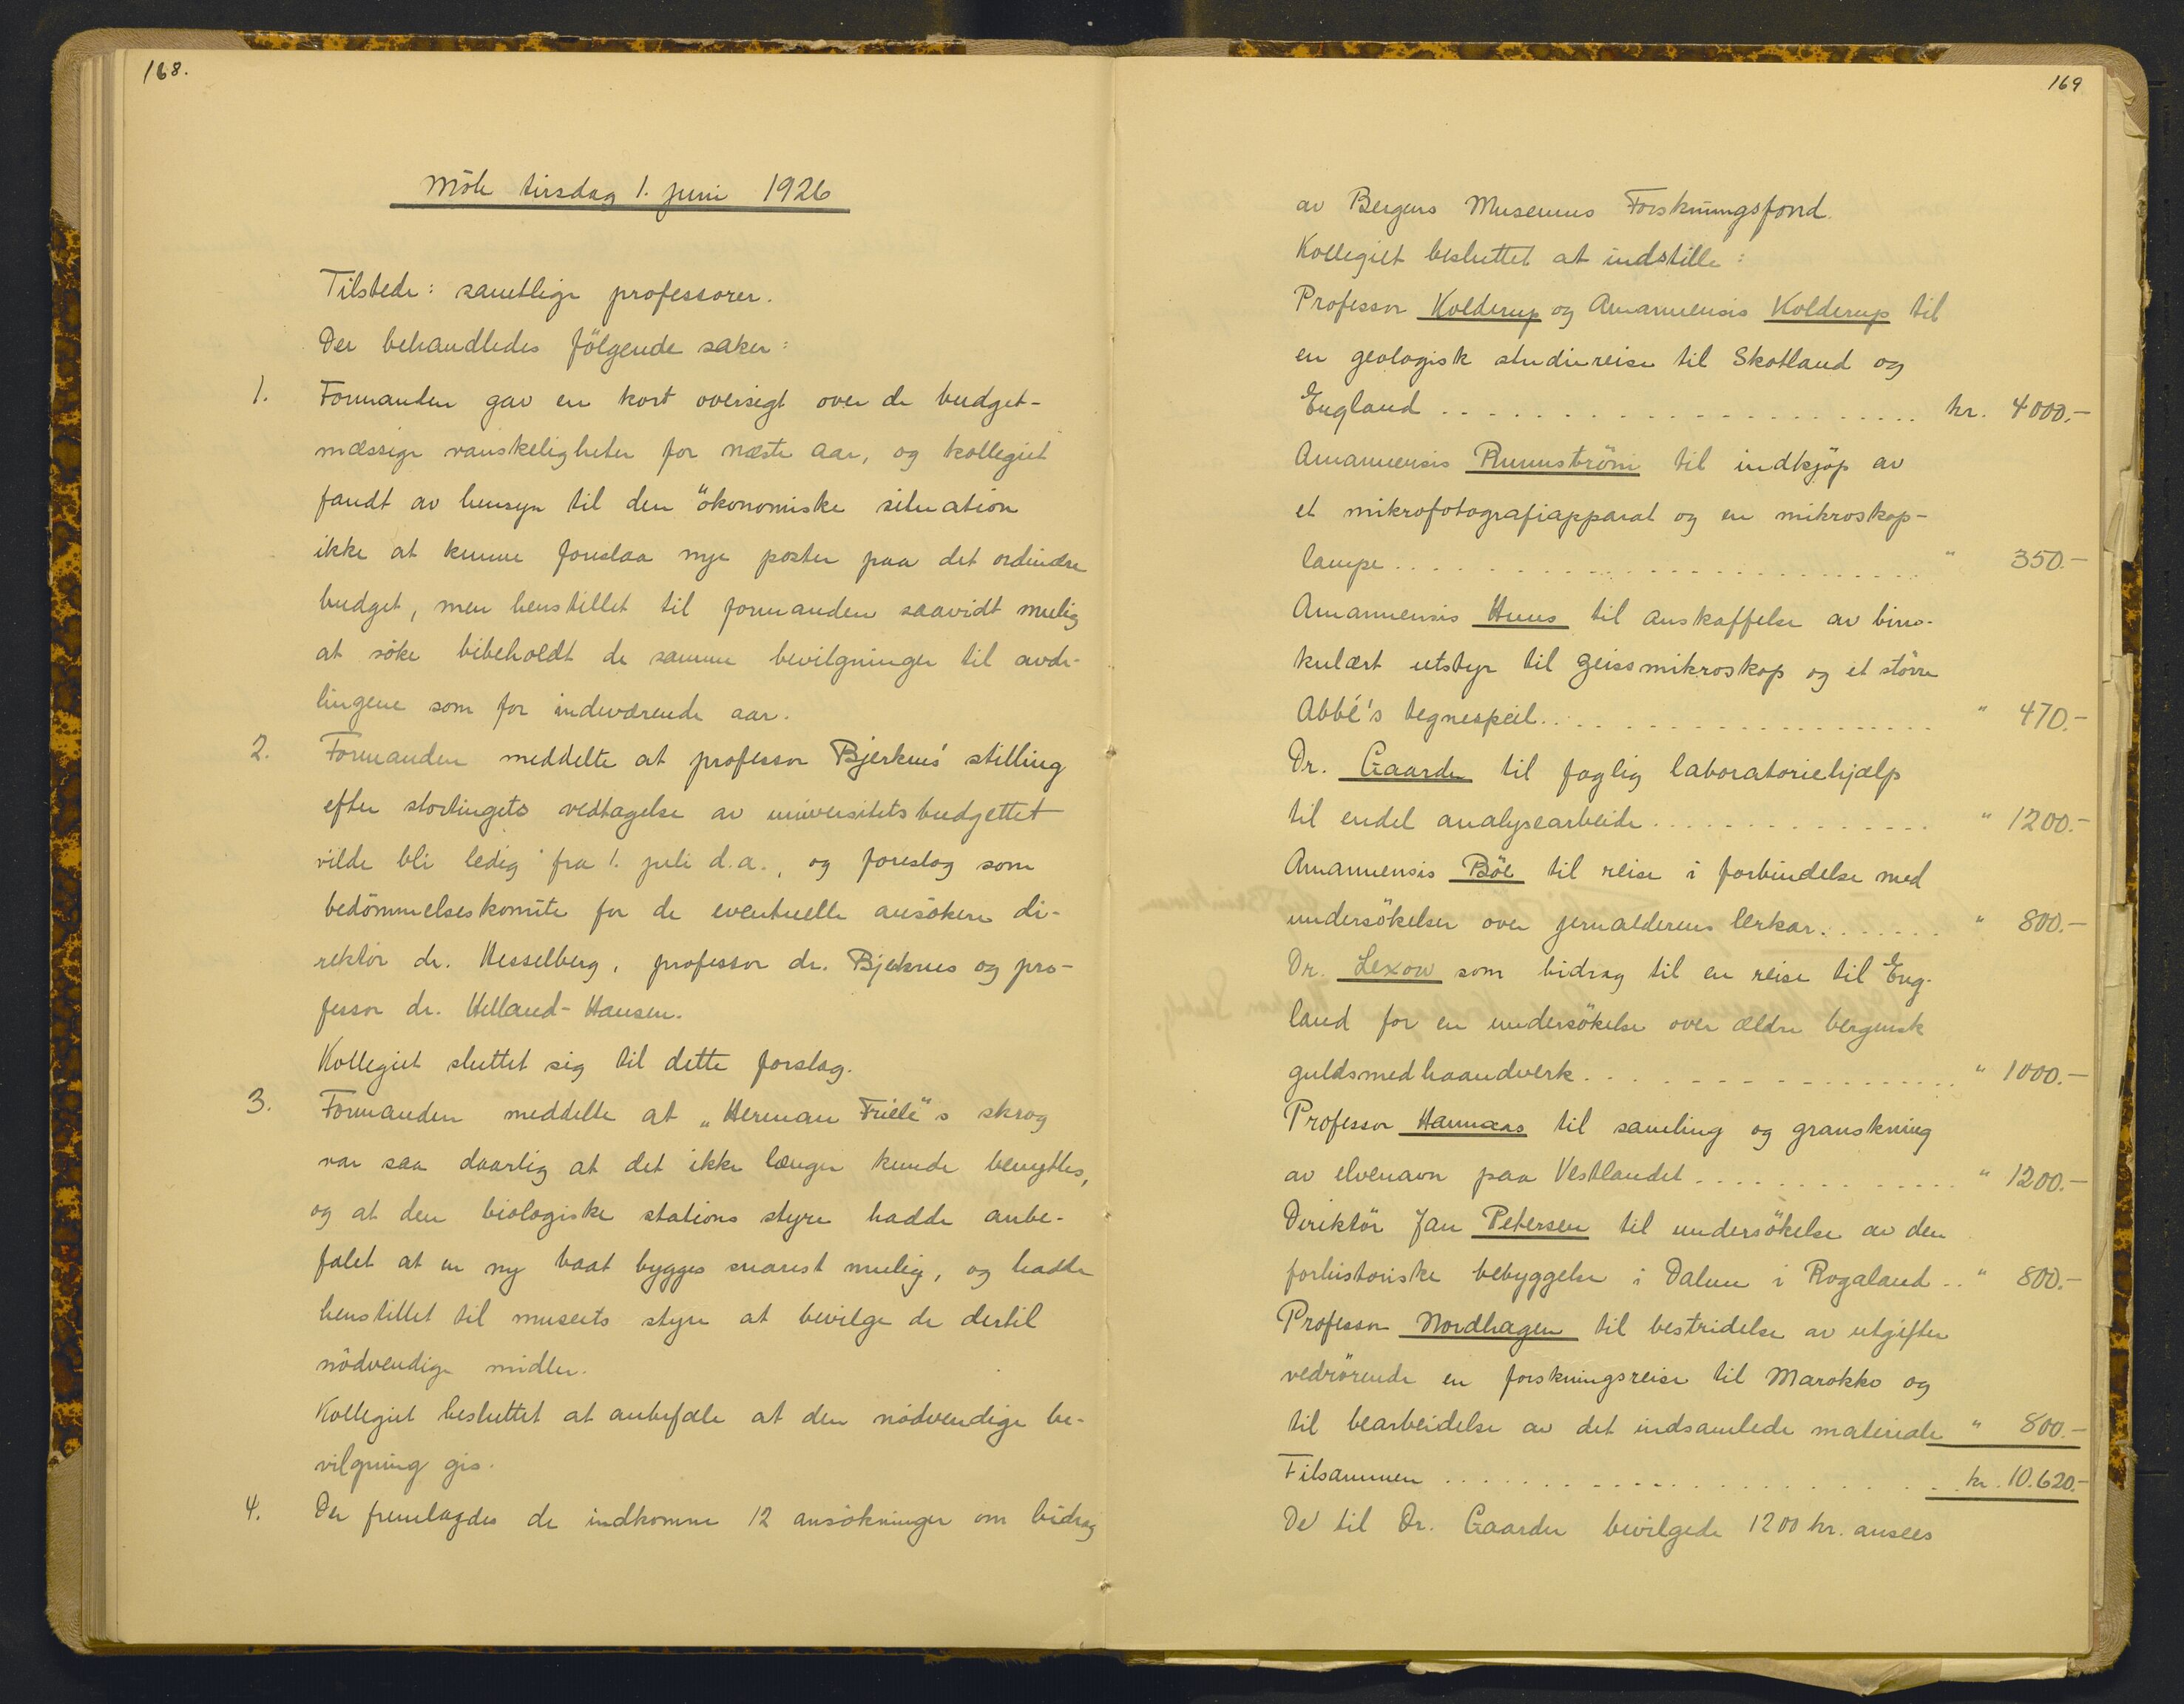 168.
Möte tirsdag 1. juni 1926
Tilstede: samtlige professorer.
Der behandledes fölgende saker:
1. Formanden gav en kort oversigt over de budget-
mæssige vanskeligheter for næste aar, og kollegiet
fandt av hensyn til den ökonomiske situation
ikke at kunne foreslaa nye poster paa det ordinære
budget, men henstillet til formanden saavidt mulig
at söke bibeholdt de samme bevilgninger til avde-
lingene som for indeværende aar.
2. Formanden meddelte at professor Bjerknes' stilling
efter stortingets vedtagelse av universitetsbudgettet
vilde bli ledig fra 1. juli d.a., og foreslog som
bedömmelseskomite for de eventuelle ansökere di-
rektör dr. Hesselberg, professor dr. Bjerknes og pro-
fessor dr. Helland-Hansen.
Kollegiet sluttet sig til dette forslag.
3. Formanden meddelte at „Herman Friele"s skrog
var saa daarlig at det ikke længer kunde benyttes,
og at den biologiske stations styre hadde anbe-
falet at en ny baat bygges snarest mulig, og hadde
henstillet til museets styre at bevilge de dertil
nödvendige midler.
Kollegiet besluttet at anbefale at den nödvendige be-
vilgning gis.
4. Der fremlagdes de indkomne 12 ansökninger om bidrag
169
av Bergens Museums Forskningsfond.
Kollegiet besluttet at indstille:
Professor Kolderup og Amanuensis Kolderup til
en geologisk studiereise til Skotland og
England . . . . . . . . . . kr. 4000.-
Amanuensis Runnström til indkjöp av
et mikrofotografiapparat og en mikroskop-
lampe . . . . . . . . . . " 350.-
Amanuensis Huus til anskaffelse av bino-
kulært utstyr til Zeissmikroskop og et större
Abbé's tegnespeil . . . . . . . . . . " 470.-
Dr. Gaarder til faglig laboratoriehjælp
til endel analysearbeide . . . . . . . . . . " 1200.-
Amanuensis Böe til reise i forbindelse med
undersökelser over jernalderens lerkar . . . . . . . " 800.-
Dr. Lexow som bidrag til en reise til Eng-
land for en undersökelse over ældre bergensk
guldsmedhaandverk . . . . . . . . . . " 1000.-
Professor Hannaas til samling og granskning
av elvenavn paa Vestlandet . . . . . . . . . . " 1200.-
Direktör Jan Petersen til undersökelse av den
forhistoriske bebyggelse i Dalene i Rogaland . . " 800.-
Professor Nordhagen til bestridelse av utgifter
vedrörende en forskningsreise til Marokko og
til bearbeidelse av det indsamlede materiale " 800.-
Tilsammen . . . . . . . . . . kr. 10.620.-
De til Dr. Gaarder bevilgede 1200 kr. ansees